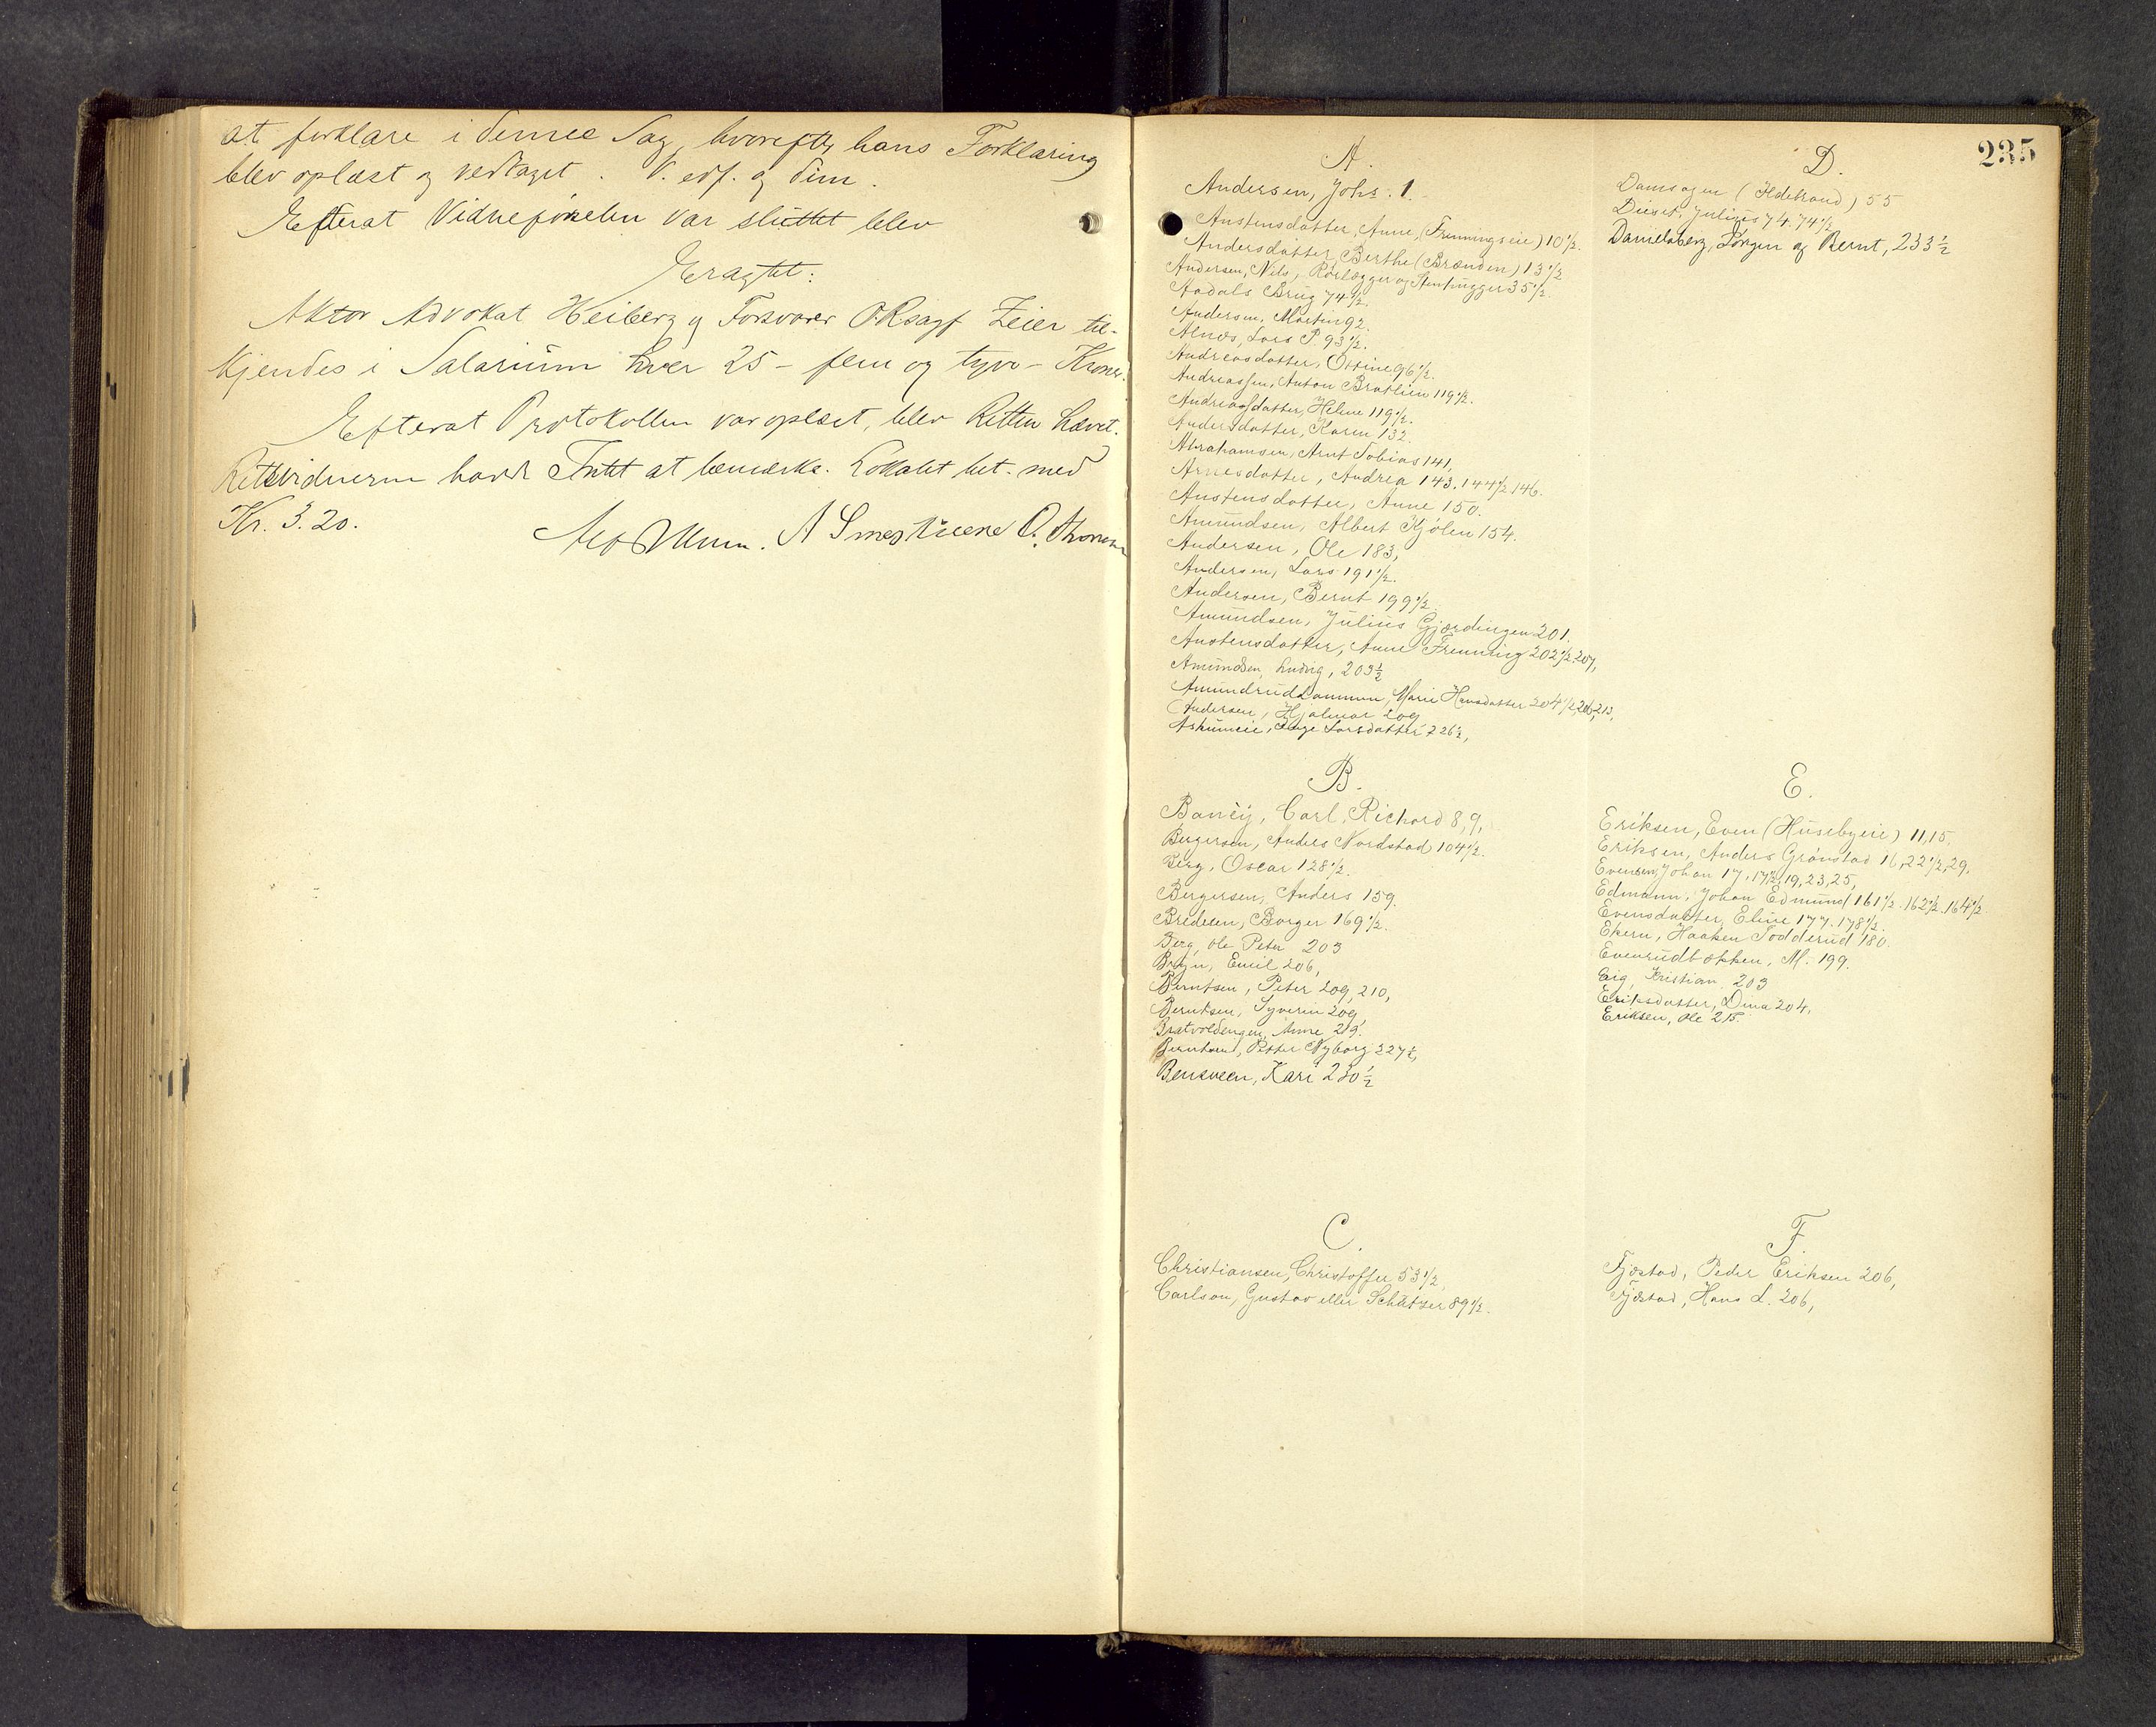 at forklare i denne Sag, hvorefter hans Forklaring
blev oplæst og vedtaget. V. edf. og dim.
Efterat Vidneførselen var sluttet blev
Eragtet:
Aktor Advokat Heiberg og Forsvarer O.Rsagf Zeier til-
kjendes i Salarium hver 25 - fem og tyve - Kroner.
Efterat Protokollen var oplæst, blev Retten hævet.
Retsvidnerne havde Intet at bemærke. Lokalet bet. med
Kr. 3.20.
A Smestuene O. Thoresen
235
A.
Andersen, Johs. 1.
Austensdatter, Anne, (Frenningseie) 10 1/2.
Andersdatter, Berthe (Brænden) 13 1/2
Andersen, Nils, Rørlægger og Stenhugger 35 1/2.
Aadals Brug 74 1/2.
Andersen, Martin 92.
Alnæs, Lars P. 93 1/2.
Andreasdatter, Ottine 96 1/2.
Andreassen, Anton Bratlien 119 1/2.
Andreasdatter, Helene 119 1/2.
Andersdatter, Karen 132.
Abrahamsen, Arnt Tobias 141,
Arnesdatter, Andrea 143. 144 1/2. 146.
Austensdatter, Anne 150.
Amundsen, Albert Kjølen 154.
Andersen, Ole 183,
Andersen, Lars 191 1/2.
Andersen, Bernt 199 1/2.
Amundsen, Julius Gjærdingen 201.
Austensdatter, Anne Frenning 202 1/2, 207,
Amundsen, Ludvig, 203 1/2
Amundrudsammen, Marie Hansdatter 204 1/2, 206, 213,
Andersen, Hjalmar 209
Askumeie, Inge Larsdatter 226 1/2,
B.
Bancij, Carl, Richard 8, 9,
Bergersen, Anders Nordstad 104 1/2.
Berg, Oscar 128 1/2.
Bergersen, Anders 159.
Bredesen, Borger 169 1/2.
Berg, Ole Peter 203
Bryn, Emil 206,
Berntsen, Peter 209, 210,
Berntsen, Syverin 209,
Bratvoldengen, Anne 219.
Petter Nyborg 227 1/2,
Bensveen, Kari 230 1/2
C.
Christiansen, Christoffer 53 1/2
Carlson, Gustav eller Schützer 89 1/2.
D.
Damsagen (Hildebrand) 55
Dieset, Julius 74. 74 1/2
Danielsberg, Jørgen og Bernt, 233 1/2
E.
Eriksen, Even (Husebyeie) 11, 15.
Eriksen, Anders Grønstad 16, 22 1/2, 29.
Evensen, Johan 17, 17 1/2, 19, 23, 25,
Edmann, Johan Edmund 161 1/2. 162 1/2. 164 1/2.
Evensdatter, Eline 177. 178 1/2.
Ekern, Haaken Todderud 180.
Evenrudbækken, M. 199.
Eig, Kristian 203
Eriksdatter, Dina 204,
Eriksen, Ole 215.
F.
Fjæstad, Peder Eriksen 206,
Fjæstad, Hans L. 206,